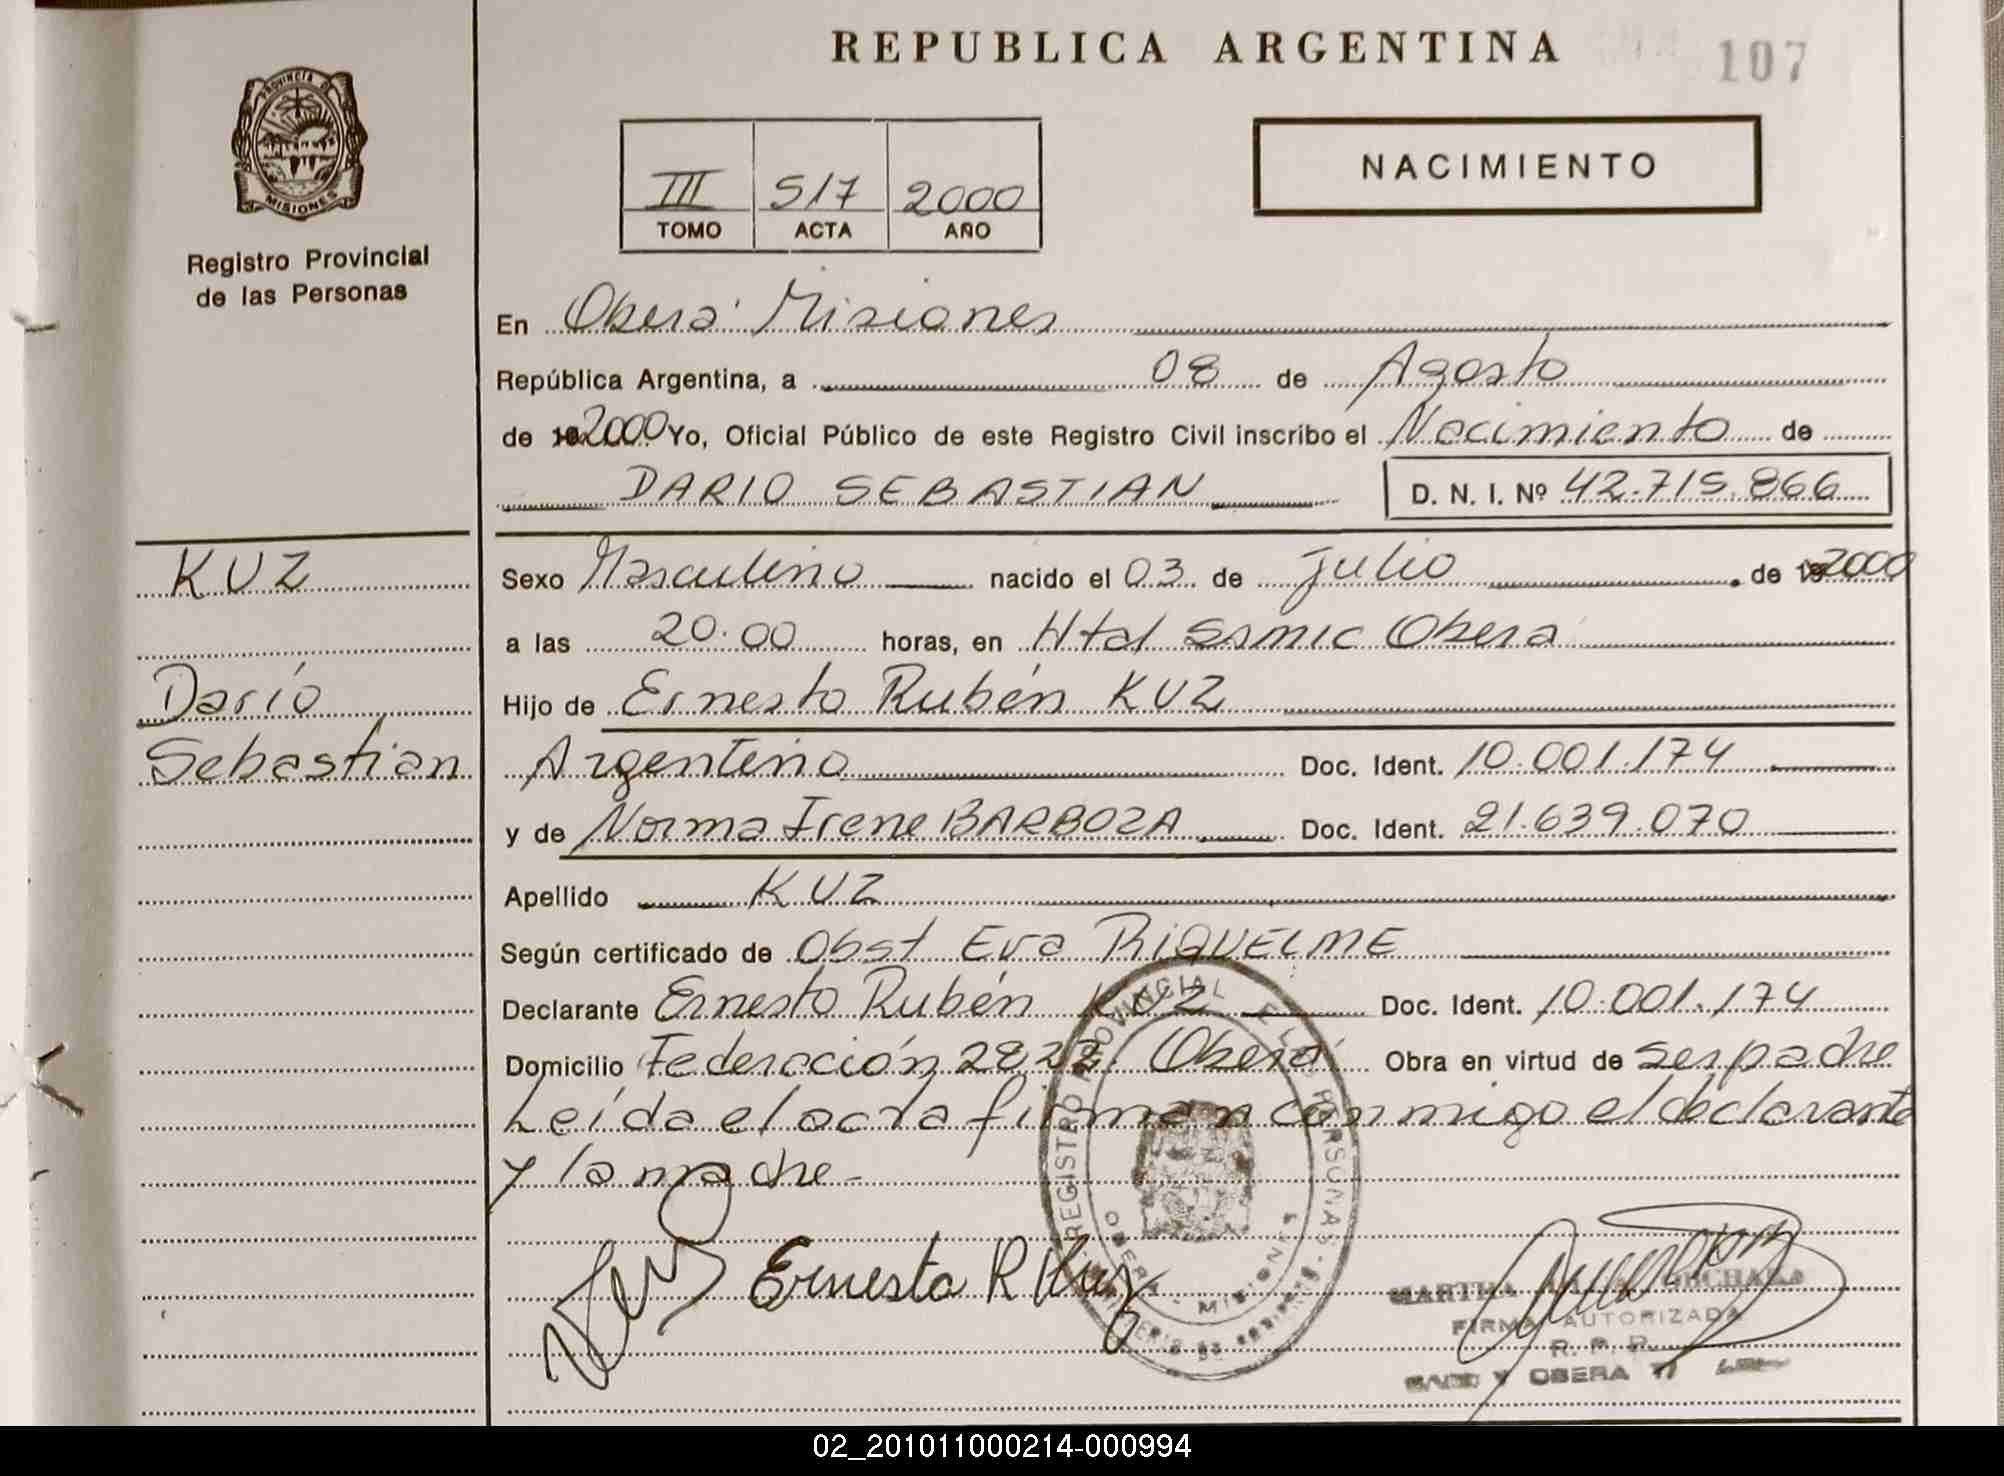 REPUBLICA ARGENTINA
107
PROVINCIA DE
MISIONES
Registro Provincial
de las Personas
III 517 2000
TOMO ACTA AÑO
NACIMIENTO
En Oberá Misiones
República Argentina, a 08 de Agosto
de 2000 Yo, Oficial Público de este Registro Civil inscribo el Nacimiento de
DARIO SEBASTIAN D. N. I. Nº 42.715.866
KUZ
Darío
Sebastian
Sexo Masculino nacido el 03 de Julio de 2000
a las 20.00 horas, en Htal Samic Oberá
Hijo de Ernesto Rubén KUZ
Argentino Doc. Ident. 10.001.174
y de Norma Irene BARBOZA Doc. Ident. 21.639.070
Apellido KUZ
Según certificado de Obst Eva RIQUELME
Declarante Ernesto Rubén KUZ Doc. Ident. 10.001.174
Domicilio Federación 2822 Oberá Obra en virtud de ser padre
Leída el acta firman conmigo el declarante
y la madre-
Ernesto R Kuz
REGISTRO PROVINCIAL DE LAS PERSONAS
OBERA - MISIONES
MARTHA
FIRMA AUTORIZADA
R. P. P.
OBERA
02_201011000214-000994